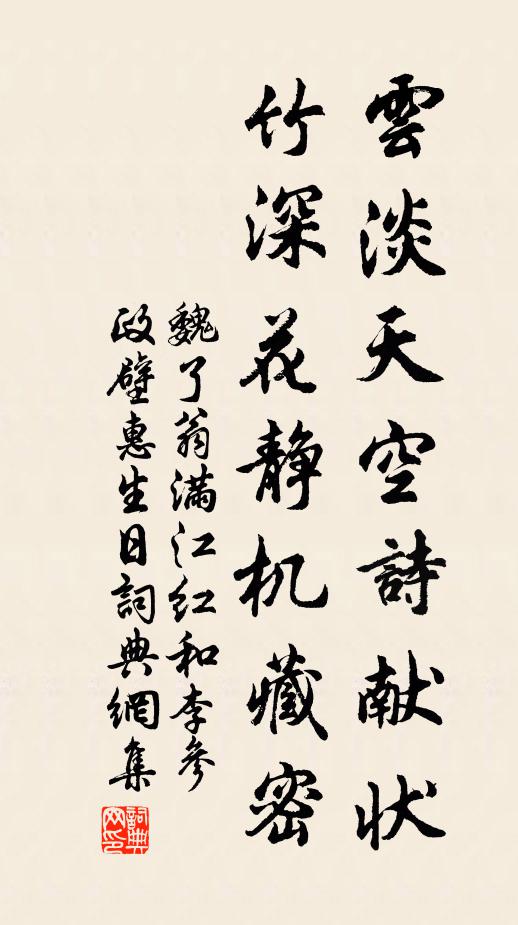 雲淡天空詩献状
竹深花静机藏密
魏了翁满江红和李參
政壁惠生日詞典網集
詞典網印